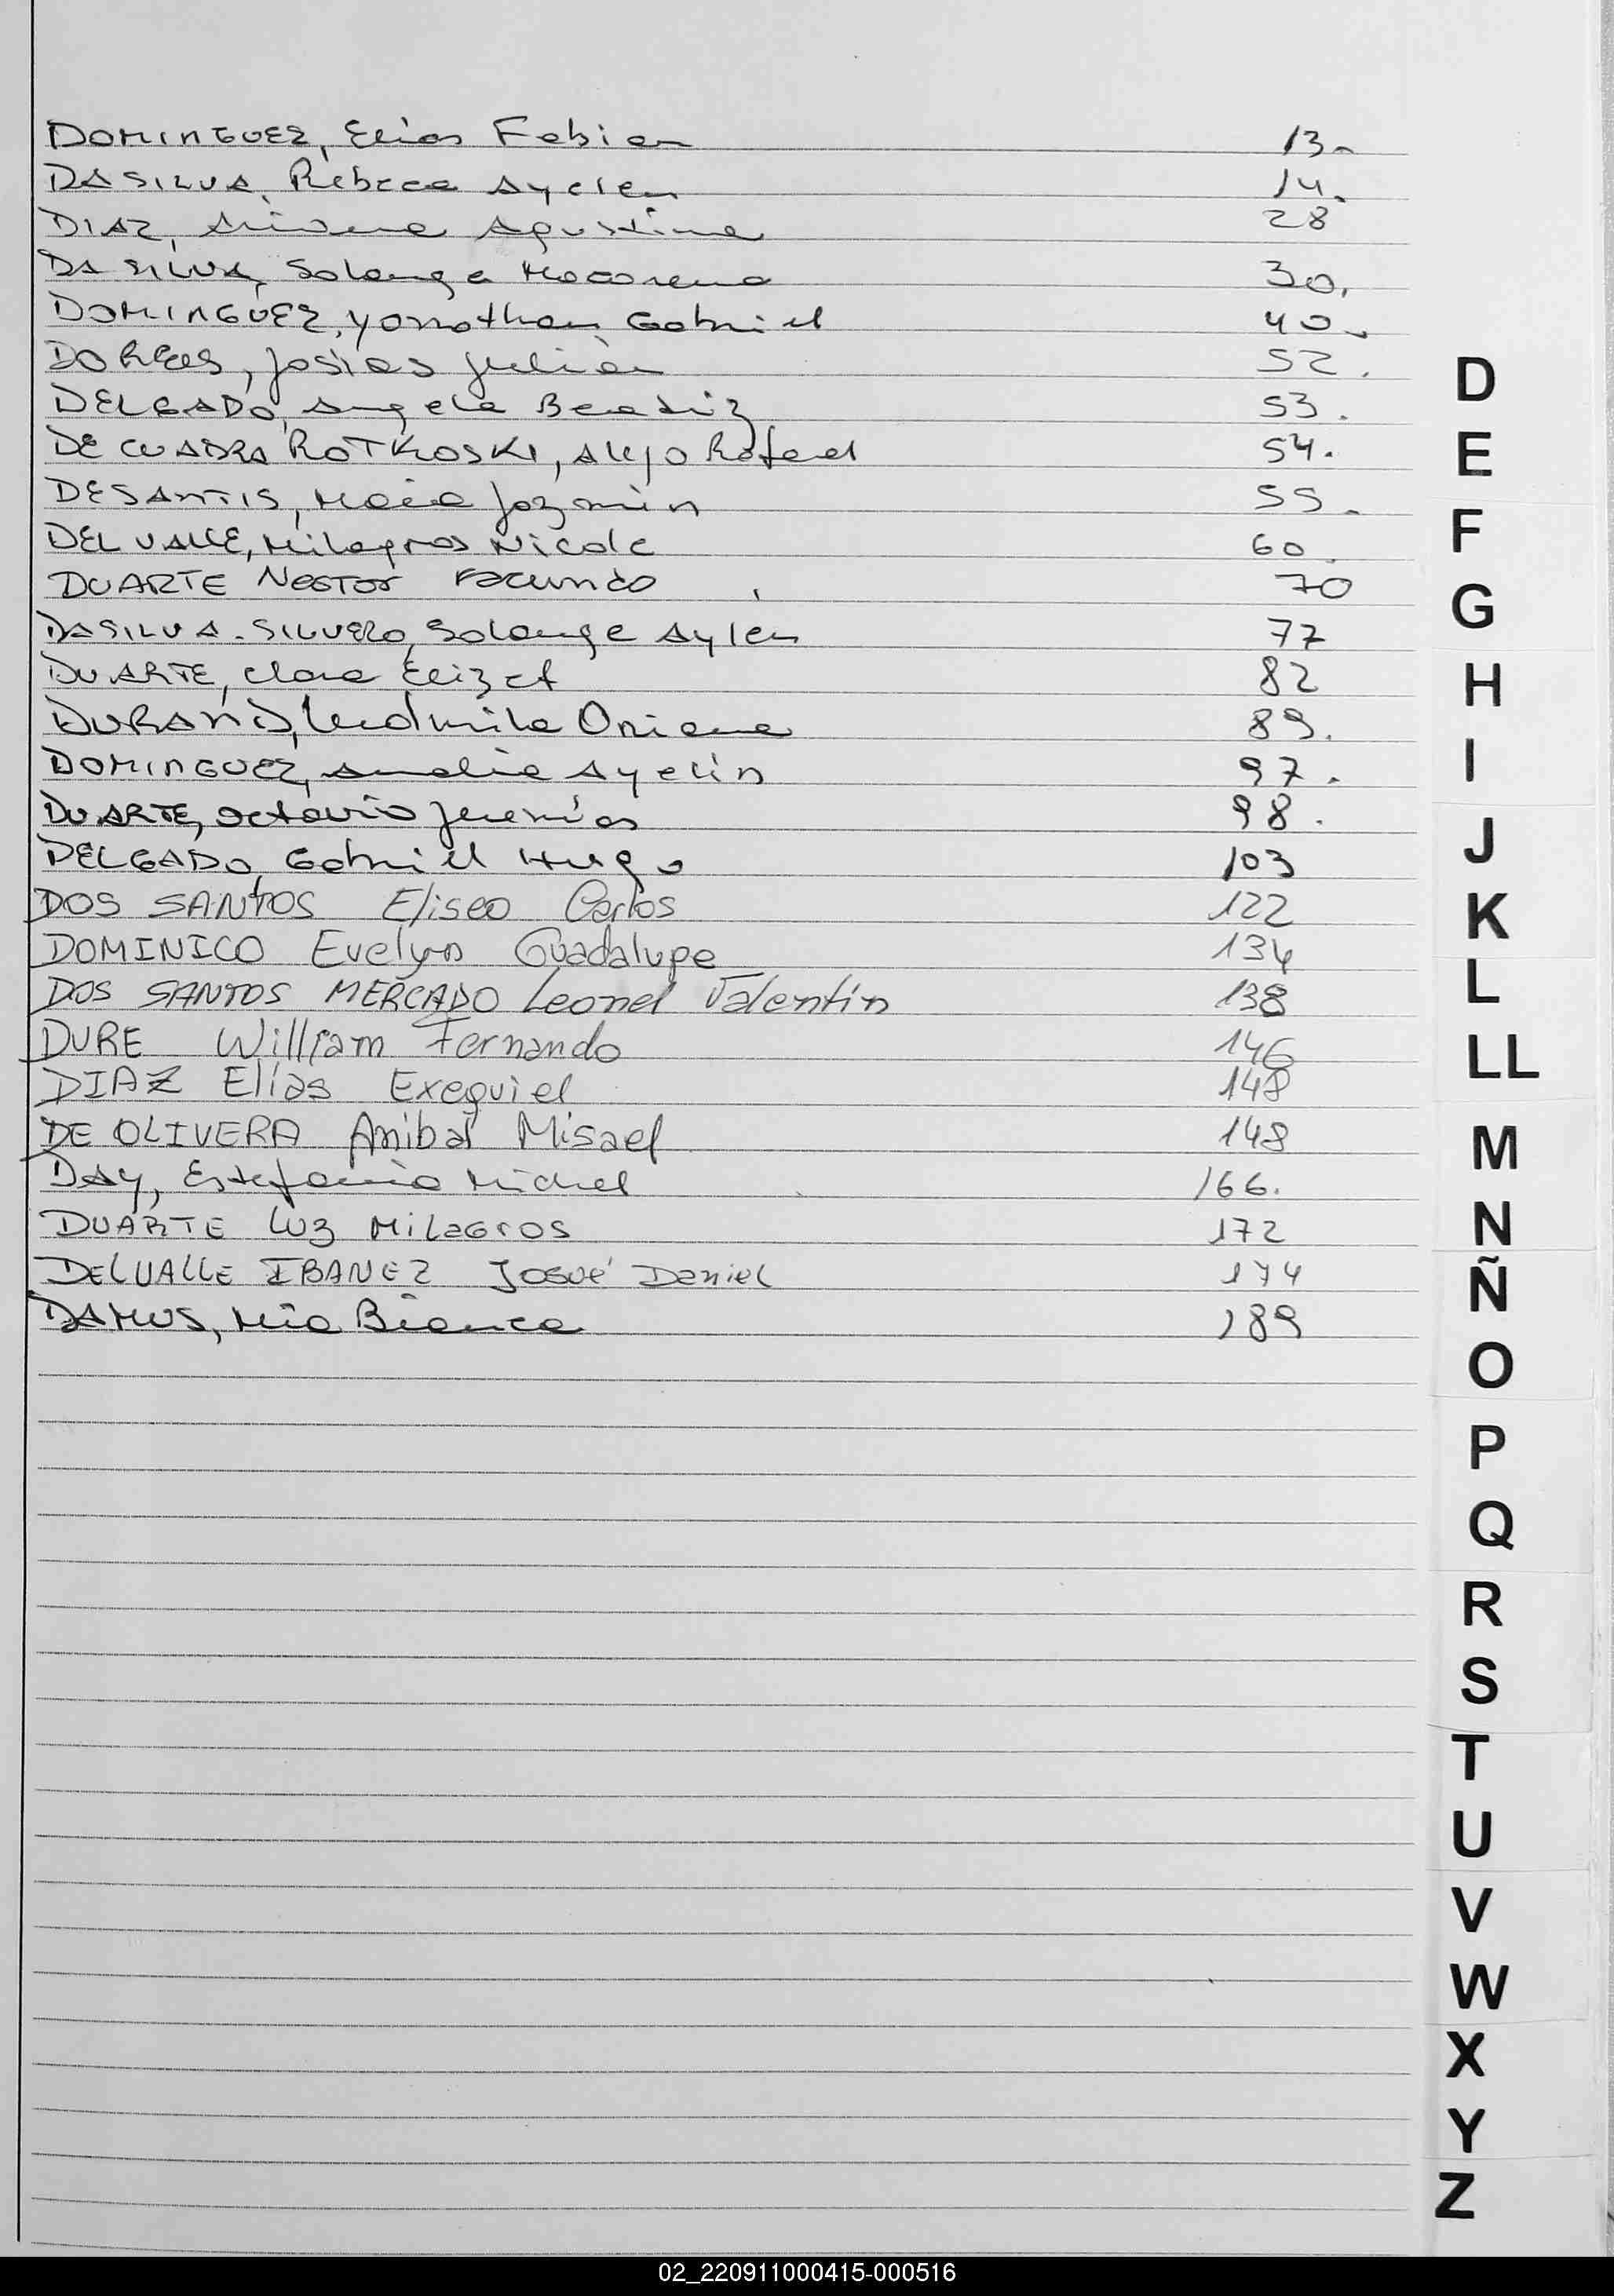 DOMINGUEZ, Elias Fabian 13.
DASILVA, Rebeca Ayelen 14.
DIAZ, Ariana Agustina 28
DA SILVA, Solange Macarena 30.
DOMINGUEZ, Yonathan Gabriel 40.
DORNELES, Josías Julián 52.
DELGADO, Angela Beatriz 53.
DE CUADRA ROTKOSKI, Alejo Rafael 54.
DESANTIS, Maia Jazmin 55.
DEL VALLE, Milagros Nicole 60.
DUARTE Nestor Facundo 70
DASILVA-SILVERO, Solange Aylen 77
DUARTE, Clara Elizet 82
DURAND, Ludmila Oriana 89.
DOMINGUEZ, Analía Ayelin 97.
DUARTE, Octavio Jeremías 98.
DELGADO, Gabriel Hugo 103
DOS SANTOS Eliseo Carlos 122
DOMINICO Evelyn Guadalupe 134
DOS SANTOS MERCADO Leonel Valentín 138
DURE William Fernando 146
DIAZ Elías Exequiel 148
DE OLIVERA Anibal Misael 148
DAY, Estefania Michel 166.
DUARTE Luz Milagros 172
DELVALLE IBANEZ Josué Daniel 174
DAMUS, Mía Bianca 189
D
E
F
G
H
I
J
K
L
LL
M
N
Ñ
O
P
Q
R
S
T
U
V
W
X
Y
Z
02_220911000415-000516